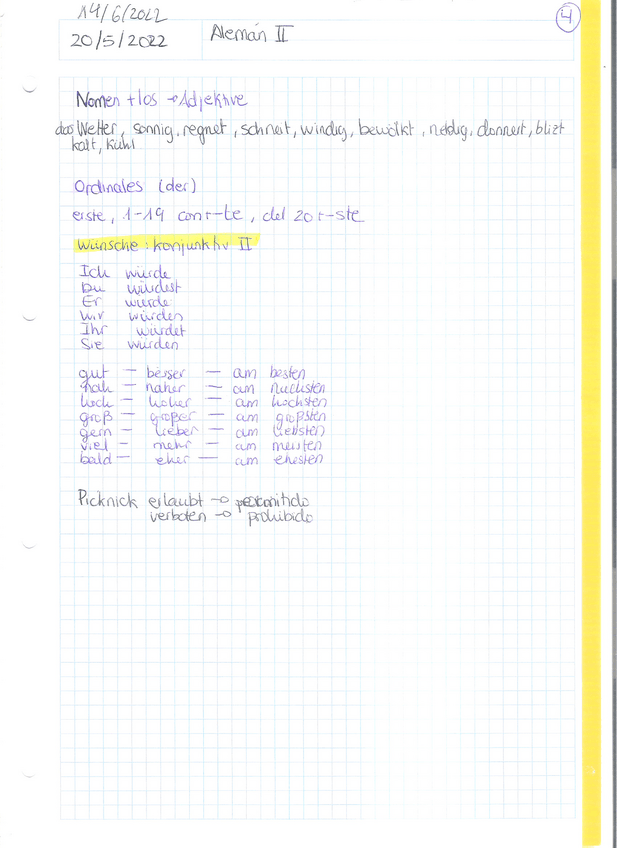 14/6/2022
4
20/5/2022
Alemán II
Nomen + los → Adjektive
das Wetter, sonnig, regnet, schneit, windig, bewölkt, neblig, donnert, blizt
kalt, kühl
Ordinales (der)
erste, 1-19 con r-te, del 20 r-ste
Wünsche: Konjunktiv II
Ich würde
Du würdest
Er würde
Wir würden
Ihr würdet
Sie würden
gut — besser — am besten
nah — naher — am nachsten
hoch — hoher — am hochsten
groß — großer — am großten
gern — lieber — am liebsten
viel — mehr — am meisten
bald — eher — am ehesten
Picknick erlaubt → permitido
verboten → prohibido